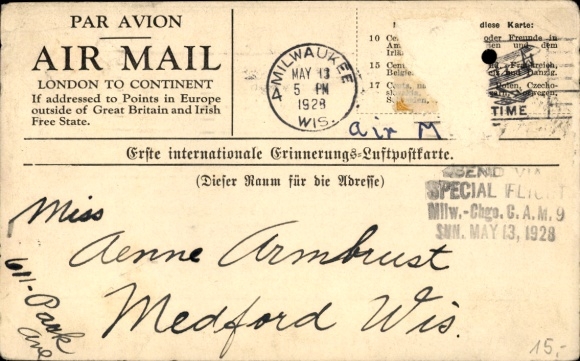 PAR AVION
AIR MAIL
LONDON TO CONTINENT
If addressed to Points in Europe
outside of Great Britain and Irish
Free State.
MILWAUKEE
MAY 13
5 PM
1928
WIS.
diese Karte:
10 Ce oder Freunde in
Am und dem
Iri
15 Cen Frankreich,
Belgie Danzig.
17 Cents, na Polen, Czecho-
Norwegen,
TIME
Air M
Erste internationale Erinnerungs-Luftpostkarte.
(Dieser Raum für die Adresse)
SEND VIA
SPECIAL FLIGHT
Milw.-Chgo. C. A. M. 9
SUN. MAY 13, 1928
Miss
Aenne Armbrust
611-Park
Ave
Medford Wis.
15,-